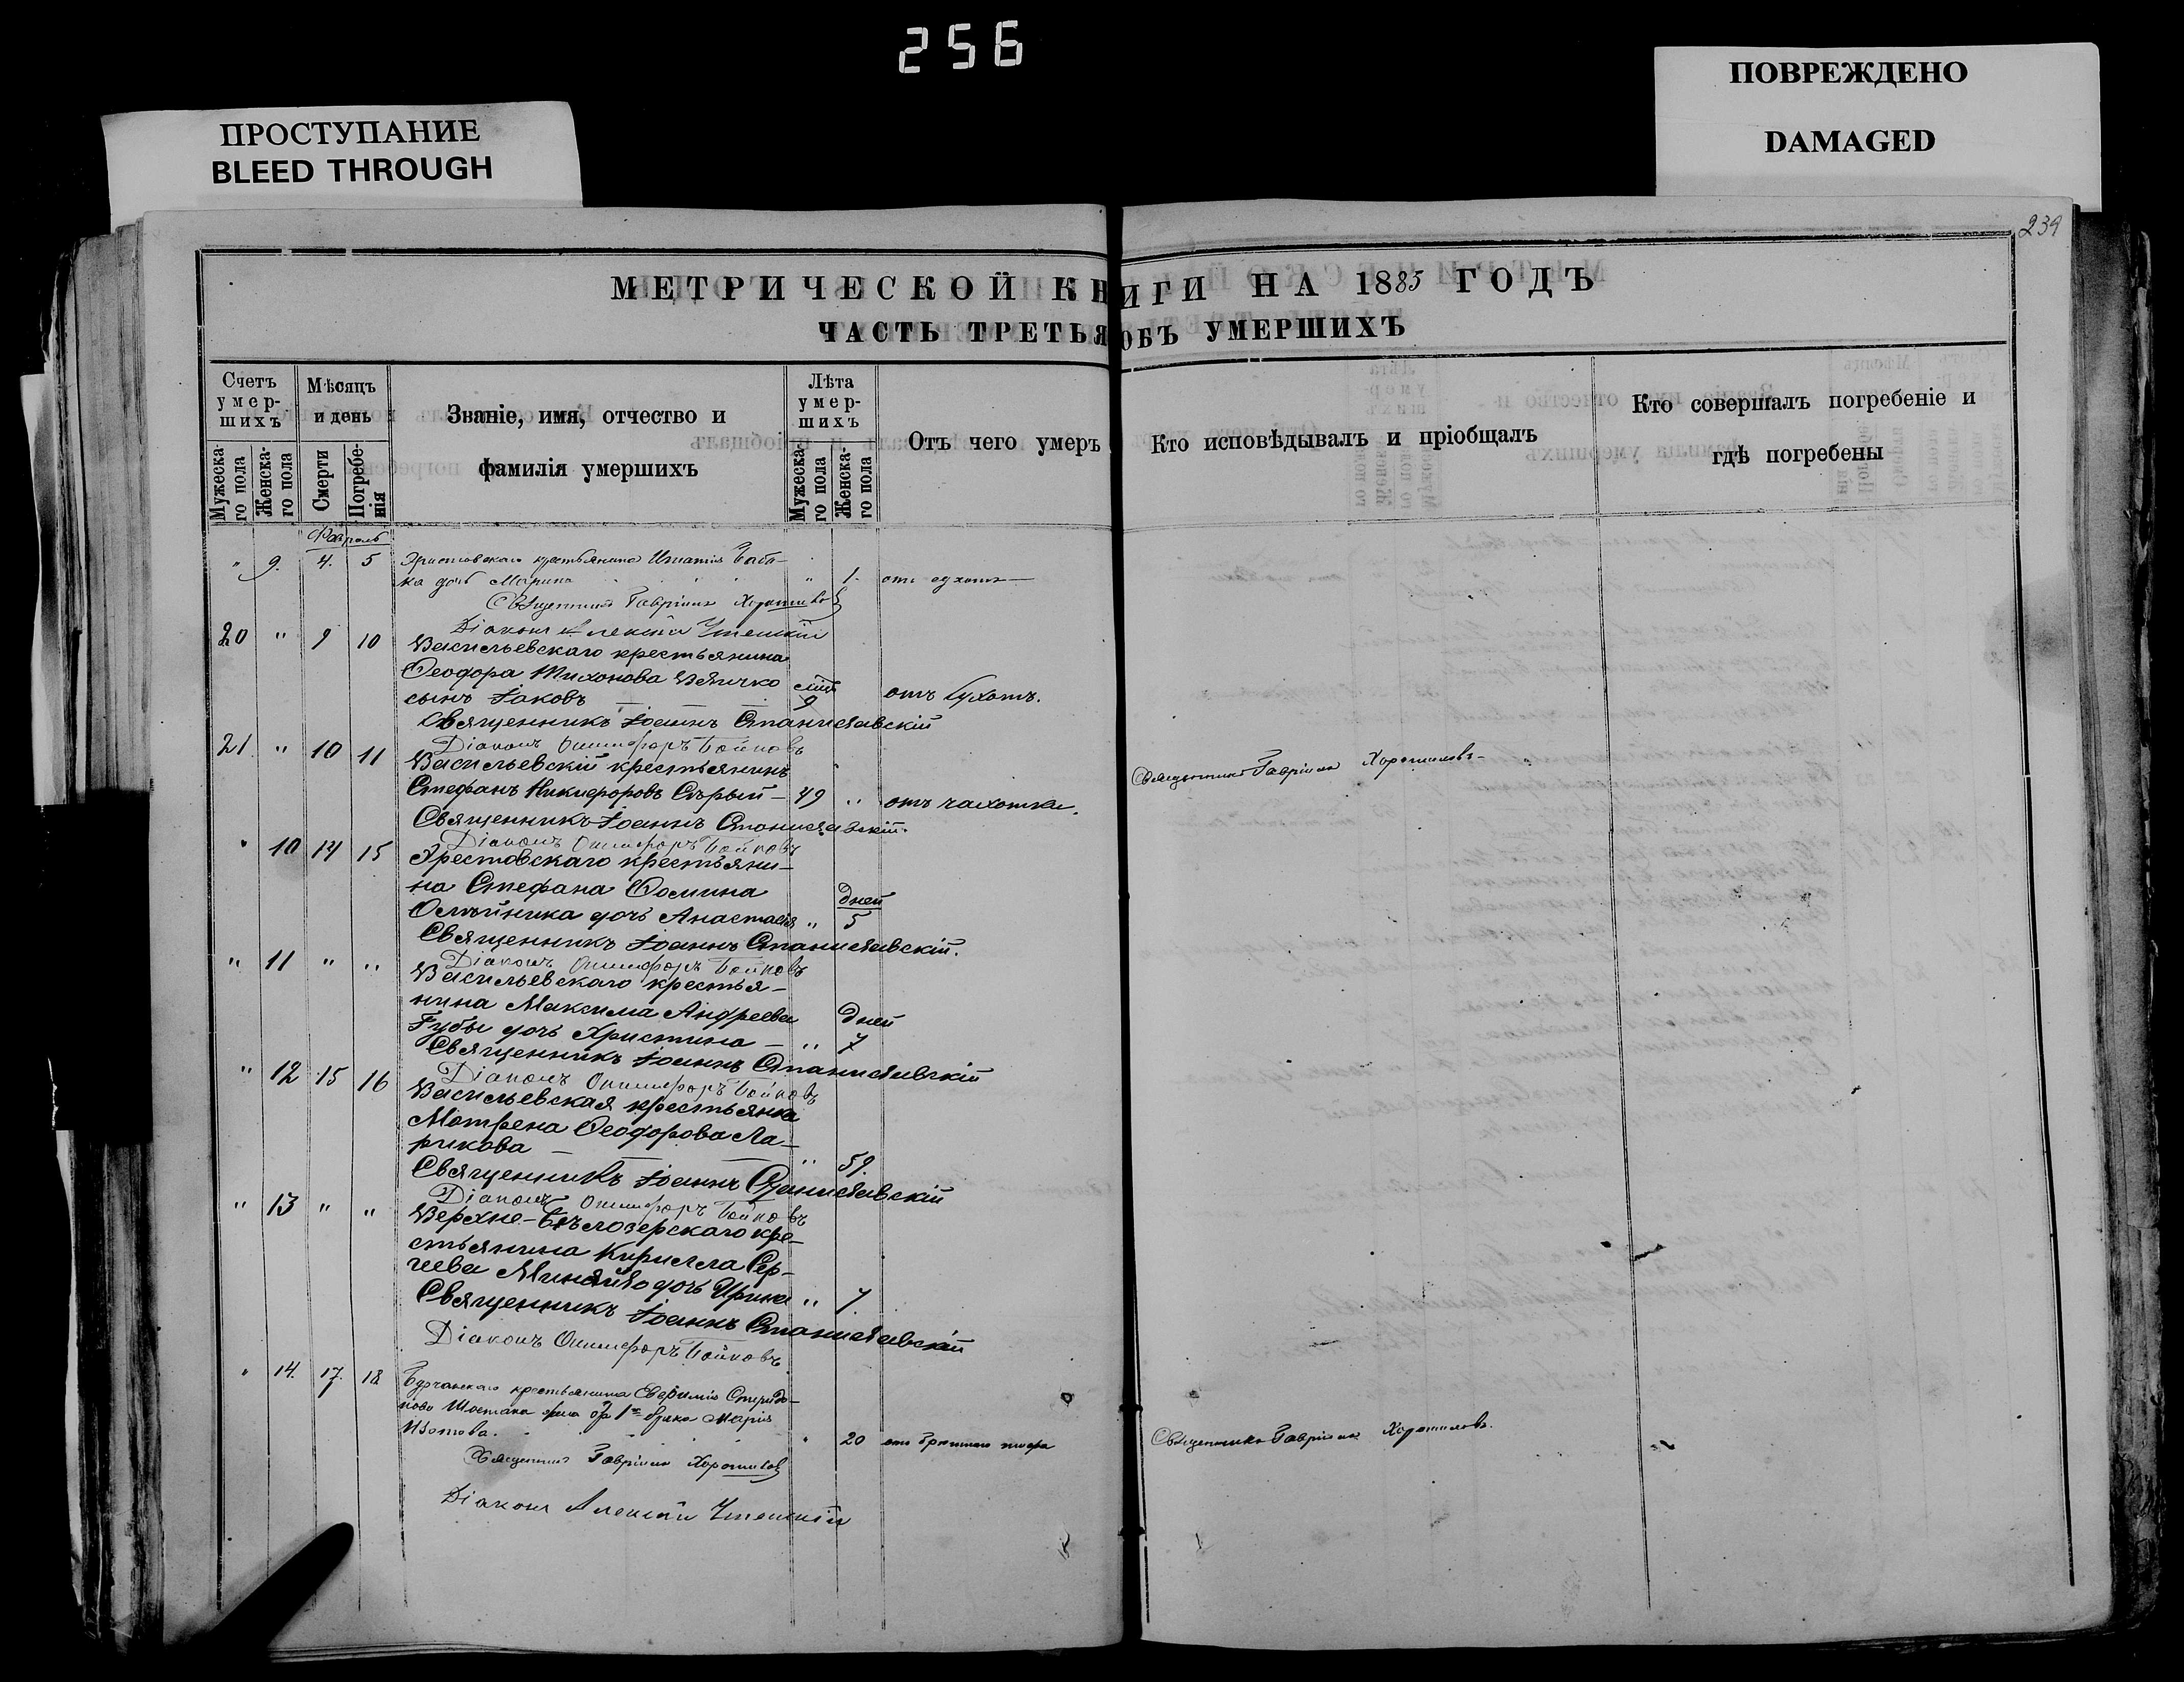 256
ПРОСТУПАНИЕ
BLEED THROUGH
ПОВРЕЖДЕНО
DAMAGED
239
МЕТРИЧЕСКОЙ КНИГИ НА 1885 ГОДЪ
ЧАСТЬ ТРЕТЬЯ ОБЪ УМЕРШИХЪ
Счетъ умер-шихъ
Мужеска-го пола
Женска-го пола
Мѣсяцъ и день
Смерти
Погребе-нія
Званіе, имя, отчество и
фамилія умершихъ
Лѣта умер-шихъ
Мужеска-го пола
Женска-го пола
Отъ чего умеръ
Кто исповѣдывалъ и пріобщалъ
Кто совершалъ погребеніе и
гдѣ погребены
Февраль
" 9. 4. 5 крестьянина Игнатія
ка дочь Марина " 1. отъ сухотъ
Священникъ Гавріилъ Хорошиловъ
Діаконъ Алексій
20 " 9 10 Васильевскаго крестьянина
Ѳеодора Тихонова Величко
сынъ Іаковъ 9 отъ сухотъ.
Священникъ Іоаннъ Станиславскій
Діаконъ Онисифоръ Бойковъ
21 " 10 11 Васильевскій крестьянинъ
Стефанъ Никифоровъ Сѣрый — 49 " отъ чахотки.
Священникъ Гавріилъ Хорошиловъ
Священникъ Іоаннъ Станиславскій.
Діаконъ Онисифоръ Бойковъ
" 10 14 15 Хрестовскаго крестьяни-
на Стефана Ѳомина дней
Олѣйника дочь Анастасія " 5
Священникъ Іоаннъ Станиславскій.
Діаконъ Онисифоръ Бойковъ
" 11 " " Васильевскаго крестья-
нина Максима Андреева дней
Губы дочь Христина — " 7
Священникъ Іоаннъ Станиславскій
Діаконъ Онисифоръ Бойковъ
" 12 15 16 Васильевская крестьянка
Матрена Ѳеодорова Ла-
рикова " 59.
Священникъ Іоаннъ Станиславскій
Діаконъ Онисифоръ Бойковъ
" 13 " " Верхне-Бѣлозерскаго кре-
стьянина Кирилла Сер-
геева дочь Ирина " 7.
Священникъ Іоаннъ Станиславскій
Діаконъ Онисифоръ Бойковъ
" 14. 17. 18. крестьянина Евфимія Спиридо-
нова Шостака жена 1го брака Марія
Изотова. " 20 отъ тифа
Священникъ Гавріилъ Хорошиловъ.
Священникъ Гавріилъ Хорошиловъ
Діаконъ Алексій